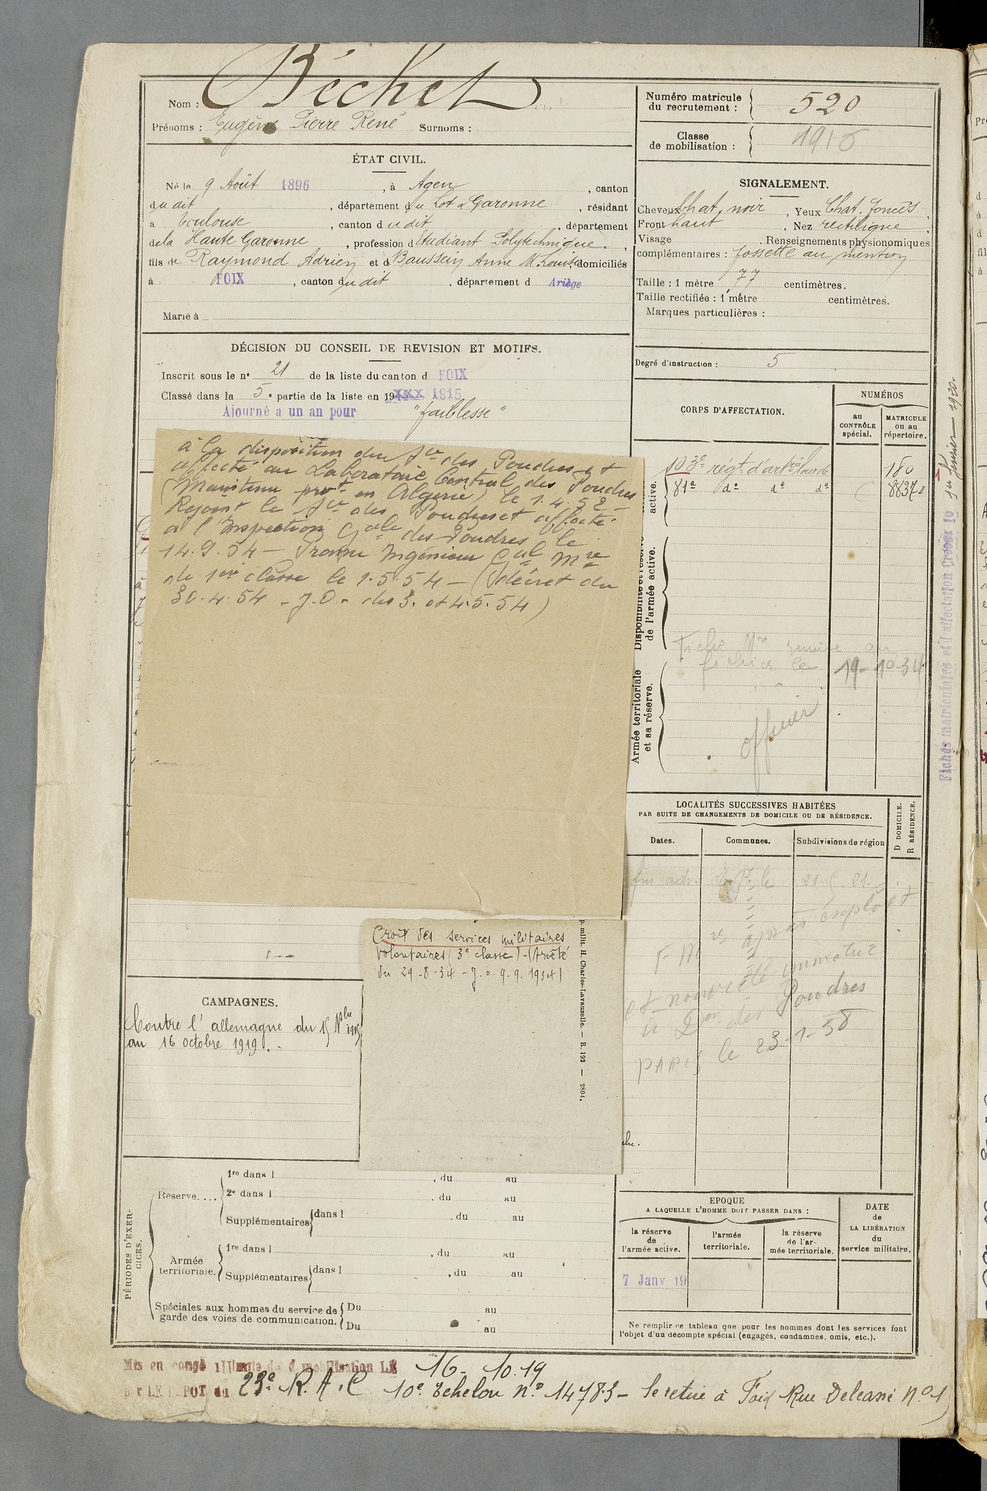 Nom : Béchet
Prénoms : Eugène Pierre René Surnoms :
ÉTAT CIVIL.
Né le 9 Août 1896, à Agen, canton
du dit, département du Lot & Garonne, résidant
à Toulouse, canton du dit, département
de la Haute Garonne, profession d'Etudiant Polytechnique.
fils de Raymond Adrien et d Baussen Anne M. Louise domiciliés
à FOIX, canton du dit, département d Ariège
Marié à
DÉCISION DU CONSEIL DE REVISION ET MOTIFS.
Inscrit sous le n° 21 de la liste du canton d FOIX
Classé dans la 5e partie de la liste en 19XXX 1915
Ajourné a un an pour "faiblesse"
à la disposition du Sce des Poudres et
affecté au Laboratoire Central des Poudres
(Maintenu provt en Algérie) le 1.4.52 –
Rejoint le Sce des Poudres et affecté
à l'Inspection Gale des Poudres le
14.9.54 – Promu Ingénieur Gal Mre
de 1ère classe le 1.5.54 – (Décret du
30.4.54 – J.O. des 3. et 4.5.54)
Croix des services militaires
volontaires (3e classe) – (Arrêté
du 29-8-34 – J.O. 9.9.1934)
p. milit. H. Charles-Lavauzelle. — R. 192 — 2804.
CAMPAGNES.
Contre l'allemagne du 15 Nbre 1915
au 16 octobre 1919.
PÉRIODES D'EXERCICES.
Réserve....
1re dans l , du au
2e dans l , du au
Supplémentaires dans l , du au
Armée territoriale.
1re dans l , du au
Supplémentaires dans l , du au
Spéciales aux hommes du service de garde des voies de communication.
Du au
Du au
Numéro matricule du recrutement : 520
Classe de mobilisation : 1916
SIGNALEMENT.
Cheveux Chat. noir, Yeux Chat. foncés,
Front haut, Nez rectiligne,
Visage . Renseignements physionomiques
complémentaires : fossette au menton
Taille : 1 mètre 77 centimètres.
Taille rectifiée : 1 mètre centimètres.
Marques particulières :
Degré d'instruction : 5
CORPS D'AFFECTATION.
NUMÉROS
au CONTRÔLE spécial.
MATRICULE ou au répertoire.
103e régt d'artrie lourde 180
81e do do do 8837
active.
Disponibilité et réserve de l'armée active.
Armée territoriale et sa réserve.
Fiche Mre remise au
fichier le 19-10-34
officier
Fiches matriculaires et d'affectation Créées le 1er février 1922
LOCALITÉS SUCCESSIVES HABITÉES
PAR SUITE DE CHANGEMENTS DE DOMICILE OU DE RÉSIDENCE.
Dates.
Communes.
Subdivisions de région
D DOMICILE.
R RÉSIDENCE.
Poudres
PARIS le 23-1-58
EPOQUE
A LAQUELLE L'HOMME DOIT PASSER DANS :
la réserve de l'armée active.
l'armée territoriale.
la réserve de l'armée territoriale.
DATE de LA LIBÉRATION du service militaire.
7 Janv 19
Ne remplir ce tableau que pour les hommes dont les services font
l'objet d'un décompte spécial (engagés, condamnés, omis, etc.).
Mis en congé illimité de démobilisation LE 16-10-19
par LE DEPOT du 23e R.A.C 10e Echelon n° 14783 – Se retire à Foix Rue Delcassé N° 1